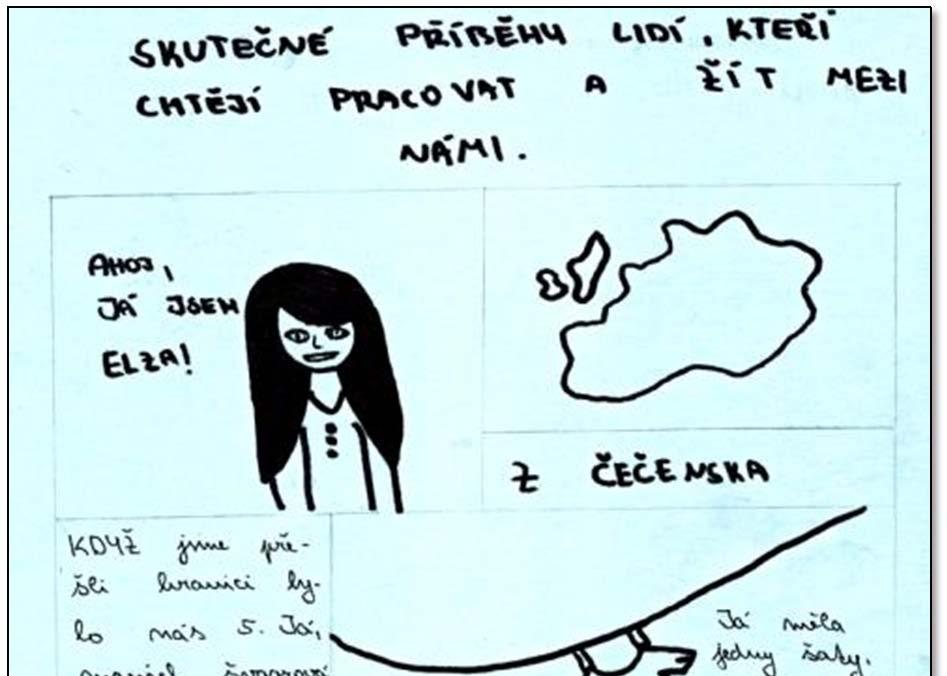 SKUTEČNÉ PŘÍBĚHY LIDÍ, KTEŘÍ
CHTĚJÍ PRACOVAT A ŽÍT MEZI
NÁMI.
AHOJ,
JÁ JSEM
ELZA!
Z ČEČENSKA
KDYŽ jsme pře-
šli hranici by-
lo nás 5. Já,
Já měla
jedny šaty.